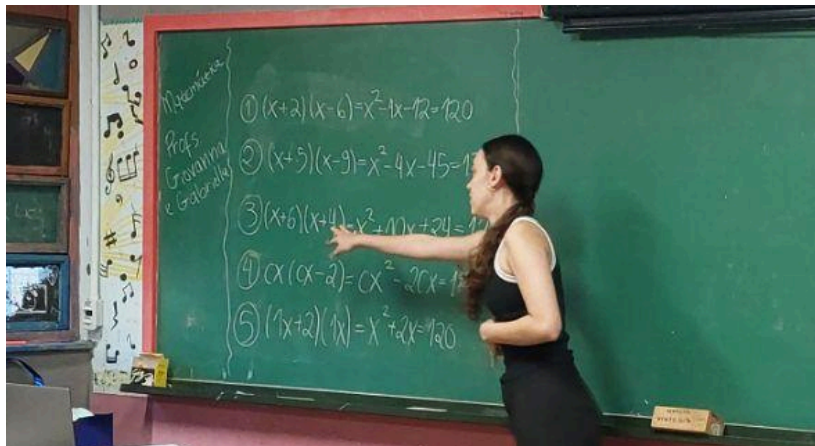 Matemática
Profs
Giovanna
e Gabrielle
① (x+2)(x-6)=x²-4x-12=120
② (x+5)(x-9)=x²-4x-45=1
③ (x+6)(x+4)=x²+10x+24=1
④ x(x-2)=x²-2x=1
⑤ (1x+2)(1x)=x²+2x=120